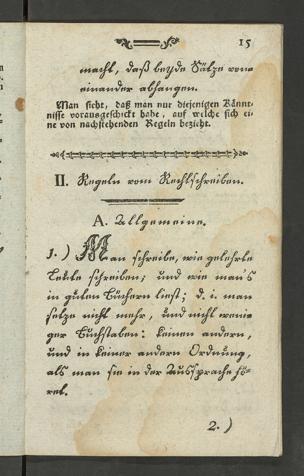 15
macht, daß beyde Sätze von
einander abhangen.
Man sieht, daß man nur diejenigen Kännt-
nisse vorausgeschickt habe, auf welche sich ei-
ne von nachstehenden Regeln bezieht.
II. Regeln vom Rechtschreiben.
A. Allgemeine.
1.) Man schreibe, wie gelehrte
Leute schreiben; und wie man's
in guten Büchern liest; d. i. man
setze nicht mehr, und nicht weni-
ger Buchstaben: keinen andern,
und in keiner andern Ordnung,
als man sie in der Aussprache hö-
ret.
2.)